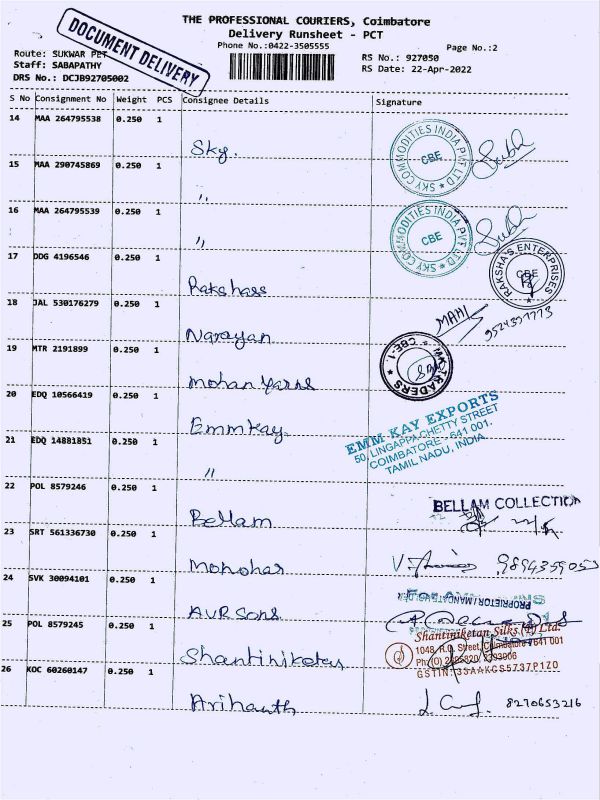 THE PROFESSIONAL COURIERS, Coimbatore
Delivery Runsheet - PCT
Phone No.:0422-3505555
Page No.:2
DOCUMENT DELIVERY
Route: SUKWAR PET
Staff: SABAPATHY
DRS No.: DCJB92705002
RS No.: 927050
RS Date: 22-Apr-2022
S No Consignment No Weight PCS Consignee Details Signature
14 MAA 264795538 0.250 1
Sky
SKY COMMODITIES INDIA PVT LTD
CBE
15 MAA 290745869 0.250 1
"
16 MAA 264795539 0.250 1
"
SKY COMMODITIES INDIA PVT LTD
CBE
17 DDG 4196546 0.250 1
Rakshass
RAKSHA'S ENTERPRISES
CBE
18 JAL 530176279 0.250 1
Narayan
MAHI
19 MTR 2191899 0.250 1
Mohan Yarns
TRADERS
CBE-1.
20 EDQ 10566419 0.250 1
Emmkay
EMM KAY EXPORTS
50, LINGAPPA CHETTY STREET
COIMBATORE - 641 001.
TAMIL NADU, INDIA
21 EDQ 14881851 0.250 1
"
22 POL 8579246 0.250 1
Bellam
BELLAM COLLECTION
23 SRT 561336730 0.250 1
Monohar
9894359053
24 SVK 30094101 0.250 1
AVR Sons
25 POL 8579245 0.250 1
Shantiniketan
Shantiniketan Silks (P) Ltd.
1048, R.G. Street, Coimbatore 641 001
GSTIN: 33AAKCS5737P1Z0
26 KOC 60260147 0.250 1
Arihanth
8270653216